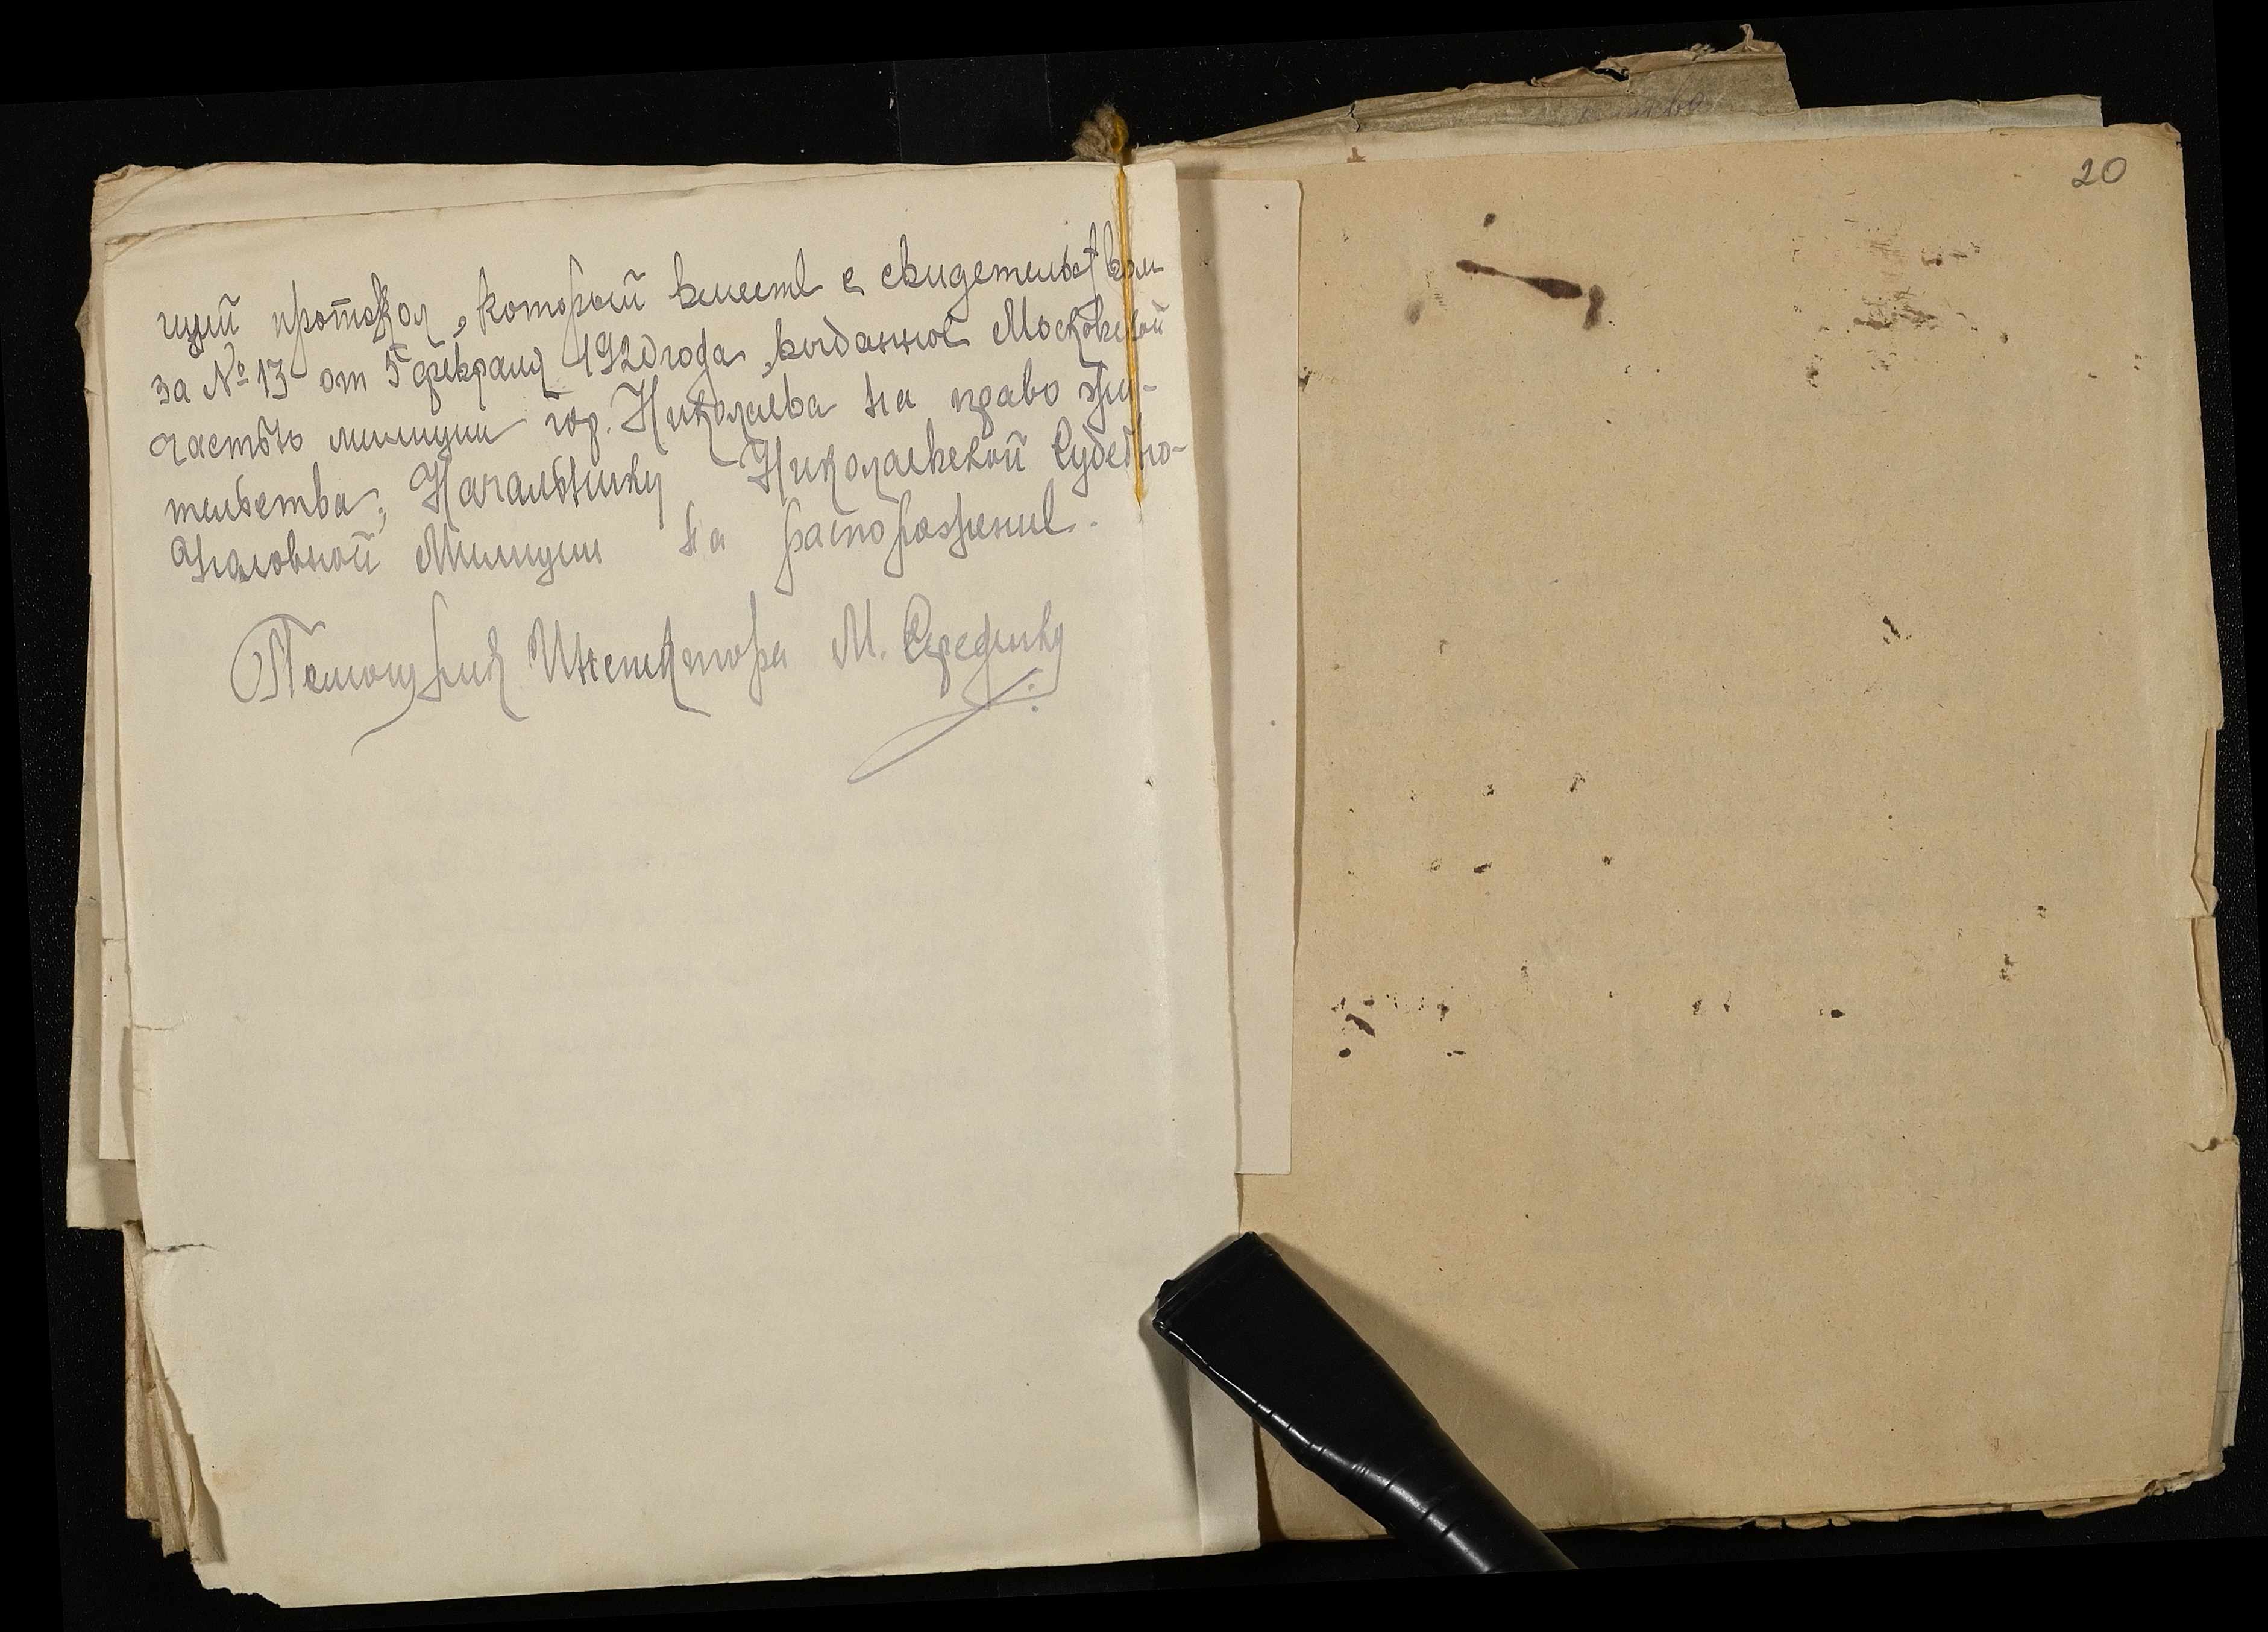 щий протокол, который вместе с свидетельством
за № 13 от 5 февраля 1920 года, выданное Московской
частью милиции гор. Николаева на право жи-
тельства, Начальнику Николаевской Судебно-
Уголовной Милиции на распоряжение.
Помощник Инспектора М.
20